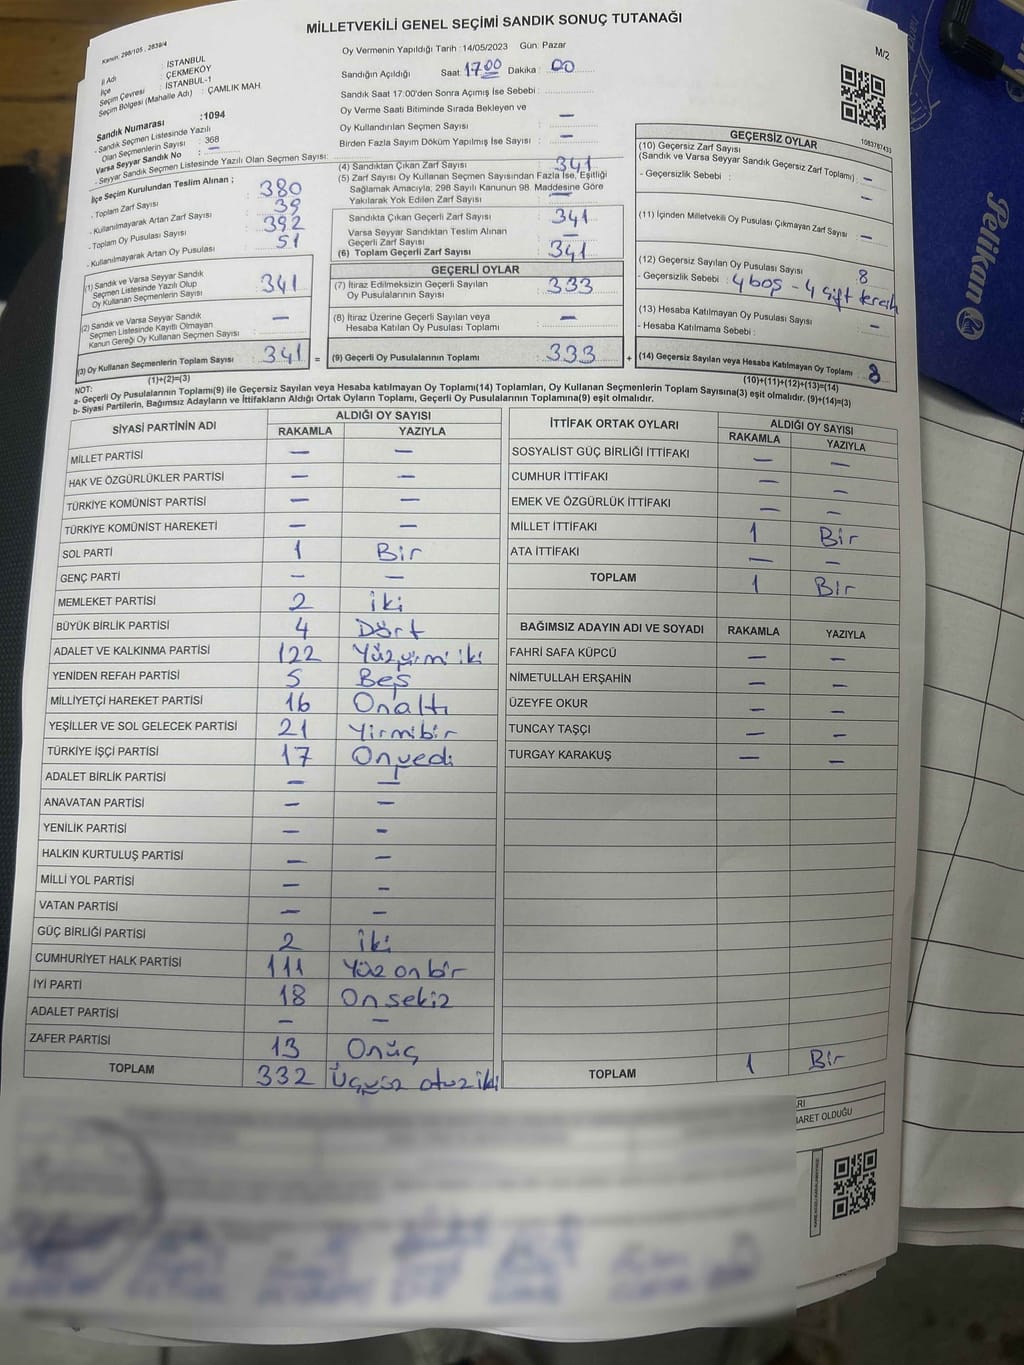 MİLLETVEKİLİ GENEL SEÇİMİ SANDIK SONUÇ TUTANAĞI
Kanun: 298/105 , 2839/4
M/2
İl Adı : İSTANBUL
İlçe : ÇEKMEKÖY
Seçim Çevresi : İSTANBUL-1
Seçim Bölgesi (Mahalle Adı) : ÇAMLIK MAH
Sandık Numarası :1094
- Sandık Seçmen Listesinde Yazılı
Olan Seçmenlerin Sayısı : 368
Varsa Seyyar Sandık No : —
- Seyyar Sandık Seçmen Listesinde Yazılı Olan Seçmen Sayısı:
İlçe Seçim Kurulundan Teslim Alınan ;
- Toplam Zarf Sayısı : 380
- Kullanılmayarak Artan Zarf Sayısı : 39
- Toplam Oy Pusulası Sayısı : 392
- Kullanılmayarak Artan Oy Pusulası : 51
(1) Sandık ve Varsa Seyyar Sandık
Seçmen Listesinde Yazılı Olup
Oy Kullanan Seçmenlerin Sayısı : 341
(2) Sandık ve Varsa Seyyar Sandık
Seçmen Listesinde Kayıtlı Olmayan
Kanun Gereği Oy Kullanan Seçmen Sayısı : —
(3) Oy Kullanan Seçmenlerin Toplam Sayısı : 341 =
(1)+(2)=(3)
Oy Vermenin Yapıldığı Tarih :14/05/2023 Gün: Pazar
Sandığın Açıldığı Saat: 17 00 Dakika : 00
Sandık Saat 17:00'den Sonra Açımış İse Sebebi :
Oy Verme Saati Bitiminde Sırada Bekleyen ve
Oy Kullandırılan Seçmen Sayısı : —
Birden Fazla Sayım Döküm Yapılmış İse Sayısı : —
(4) Sandıktan Çıkan Zarf Sayısı : 341
(5) Zarf Sayısı Oy Kullanan Seçmen Sayısından Fazla İse, Eşitliği
Sağlamak Amacıyla, 298 Sayılı Kanunun 98. Maddesine Göre
Yakılarak Yok Edilen Zarf Sayısı : —
Sandıkta Çıkan Geçerli Zarf Sayısı : 341
Varsa Seyyar Sandıktan Teslim Alınan
Geçerli Zarf Sayısı : —
(6) Toplam Geçerli Zarf Sayısı : 341
GEÇERLİ OYLAR
(7) İtiraz Edilmeksizin Geçerli Sayılan
Oy Pusulalarının Sayısı : 333
(8) İtiraz Üzerine Geçerli Sayılan veya
Hesaba Katılan Oy Pusulası Toplamı : —
(9) Geçerli Oy Pusulalarının Toplamı : 333 +
1083787433
GEÇERSİZ OYLAR
(10) Geçersiz Zarf Sayısı
(Sandık ve Varsa Seyyar Sandık Geçersiz Zarf Toplamı) : —
- Geçersizlik Sebebi : —
(11) İçinden Milletvekili Oy Pusulası Çıkmayan Zarf Sayısı : —
(12) Geçersiz Sayılan Oy Pusulası Sayısı : 8
- Geçersizlik Sebebi : 4 boş - 4 çift tercih
(13) Hesaba Katılmayan Oy Pusulası Sayısı : —
- Hesaba Katılmama Sebebi :
(14) Geçersiz Sayılan veya Hesaba Katılmayan Oy Toplamı : 8
(10)+(11)+(12)+(13)=(14)
NOT:
a- Geçerli Oy Pusulalarının Toplamı(9) ile Geçersiz Sayılan veya Hesaba katılmayan Oy Toplamı(14) Toplamları, Oy Kullanan Seçmenlerin Toplam Sayısına(3) eşit olmalıdır. (9)+(14)=(3)
b- Siyasi Partilerin, Bağımsız Adayların ve İttifakların Aldığı Ortak Oyların Toplamı, Geçerli Oy Pusulalarının Toplamına(9) eşit olmalıdır.
SİYASİ PARTİNİN ADI ALDIĞI OY SAYISI
RAKAMLA YAZIYLA
MİLLET PARTİSİ — —
HAK VE ÖZGÜRLÜKLER PARTİSİ — —
TÜRKİYE KOMÜNİST PARTİSİ — —
TÜRKİYE KOMÜNİST HAREKETİ — —
SOL PARTİ 1 Bir
GENÇ PARTİ — —
MEMLEKET PARTİSİ 2 iki
BÜYÜK BİRLİK PARTİSİ 4 Dört
ADALET VE KALKINMA PARTİSİ 122 Yüzyirmi iki
YENİDEN REFAH PARTİSİ 5 Beş
MİLLİYETÇİ HAREKET PARTİSİ 16 Onaltı
YEŞİLLER VE SOL GELECEK PARTİSİ 21 Yirmibir
TÜRKİYE İŞÇİ PARTİSİ 17 Onyedi
ADALET BİRLİK PARTİSİ — —
ANAVATAN PARTİSİ — —
YENİLİK PARTİSİ — —
HALKIN KURTULUŞ PARTİSİ — —
MİLLİ YOL PARTİSİ — —
VATAN PARTİSİ — —
GÜÇ BİRLİĞİ PARTİSİ 2 iki
CUMHURİYET HALK PARTİSİ 111 Yüz on bir
İYİ PARTİ 18 On sekiz
ADALET PARTİSİ — —
ZAFER PARTİSİ 13 Onüç
TOPLAM 332 Üçyüz otuz iki
İTTİFAK ORTAK OYLARI ALDIĞI OY SAYISI
RAKAMLA YAZIYLA
SOSYALİST GÜÇ BİRLİĞİ İTTİFAKI — —
CUMHUR İTTİFAKI — —
EMEK VE ÖZGÜRLÜK İTTİFAKI — —
MİLLET İTTİFAKI 1 Bir
ATA İTTİFAKI — —
TOPLAM 1 Bir
BAĞIMSIZ ADAYIN ADI VE SOYADI RAKAMLA YAZIYLA
FAHRİ SAFA KÜPCÜ — —
NİMETULLAH ERŞAHİN — —
ÜZEYFE OKUR — —
TUNCAY TAŞÇI — —
TURGAY KARAKUŞ — —
TOPLAM 1 Bir
RI
ARET OLDUĞU
Pelikan